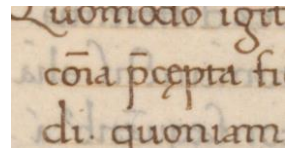 Quomodo igit
co͞ia p̄cępta fi
di. quoniam